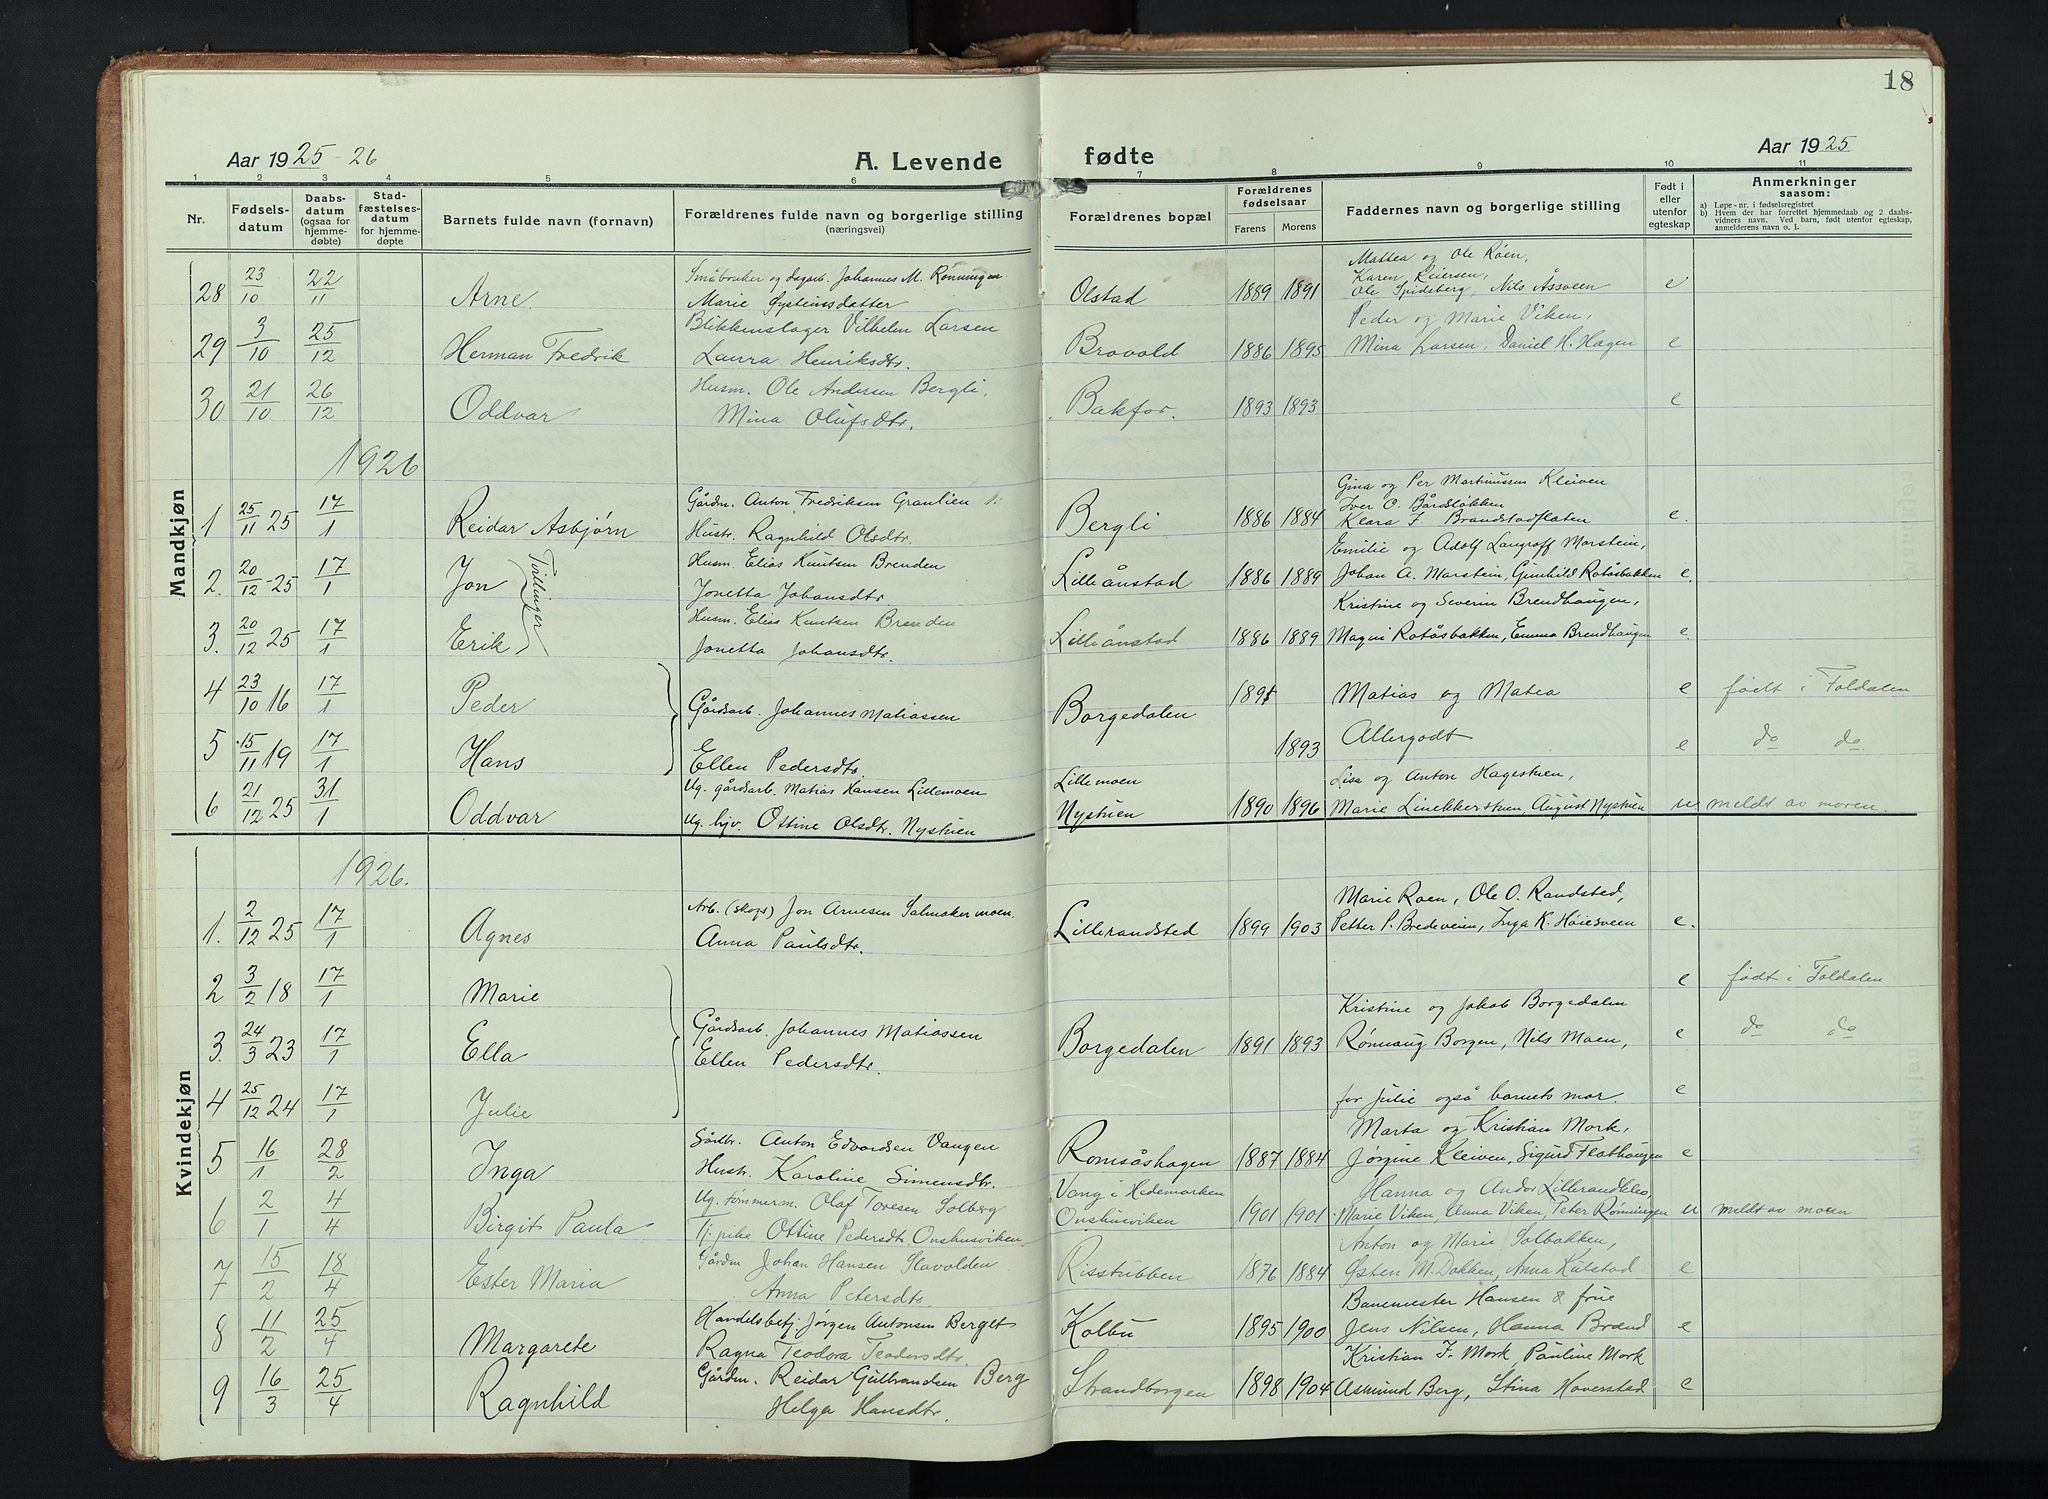 18
Aar 1925-26
A. Levende
fødte
Aar 1925
1 2 3 4 5 6 7 8 9 10 11
Nr.
Fødsels-
datum
Daabs-
datum
(ogsaa for
hjemme-
døbte)
Stad-
fæstelses-
datum
for hjemme-
døpte
Barnets fulde navn (fornavn)
Forældrenes fulde navn og borgerlige stilling
(næringsvei)
Forældrenes bopæl
Forældrenes
fødselsaar
Farens Morens
Faddernes navn og borgerlige stilling
Født i
eller
utenfor
egteskap
Anmerkninger
saasom:
a) Løpe-nr. i fødselsregistret
b) Hvem der har forrettet hjemmedaab og 2 daabs-
vidners navn. Ved barn, født utenfor egteskap,
anmelderens navn o. l.
Mandkjøn
28 23/10 22/11 Arne
Småbruker og dagarb. Johannes M. Rønningen
Marie Øysteinsdatter
Olstad 1889 1891
Mattea og Ole Røen,
Karen Reiersen,
Ole Spidsberg, Nils Åssveen e
29 3/10 25/12 Herman Fredrik
Blikkenslager Vilhelm Larsen
Laura Henriksdtr.
Brovold 1886 1895
Peder og Marie Viken,
Mina Larsen, Daniel H. Hagen e
30 21/10 26/12 Oddvar
Husm. Ole Andersen Bergli,
Mina Olufsdtr.
Bakfor. 1893 1893 e
1926
1 25/11 25 17/1 Reidar Asbjørn
Gårdm. Anton Fredriksen Granlien
Hustr. Ragnhild Olsdtr.
Bergli 1886 1884
Gina og Per Martinussen Kleiven
Iver O. Bårdsløkken
Klara F. Brandstadflaten e.
2. 20/12-25 17/1 Jon
Tvillinger
Husm. Elias Knutsen Brenden
Jonetta Johansdtr
Lilleånstad 1886 1889
Emilie og Adolf Langroff Morstein,
Johan A. Marstein, Gunhild Rotåsbakken e.
3. 20/12 25 17/1 Erik
Husm. Elias Knutsen Brenden
Jonetta Johansdtr.
Lilleånstad 1886 1889
Kristine og Severin Brendhaugen,
Magni Rotåsbakken, Emma Brendhaugen e.
4 23/10 16 17/1 Peder
Gårdsarb. Johannes Matiassen
Borgedalen 1891
Matias og Matea e født i Foldalen
5 15/11 19 17/1 Hans
Ellen Pedersdtr.
1893
Allergodt e do do
6 21/12 25 31/1 Oddvar
Ug. gårdsarb. Matias Hansen Lillemoen
Ug. hjv. Ottine Olsdtr. Nystuen
Lillemoen
Nystuen 1890 1896
Lisa og Anton Hagestuen,
Marie Linekkerstuen, August Nystuen u meldt av moren.
Kvindekjøn
1926.
1. 2/12 25 17/1 Agnes
Arb. (skogs) Jon Arnesen Salmakermoen.
Anna Paulsdtr.
Lillerandsted 1899 1903
Marie Roen, Ole O. Randsted,
Petter P. Bredeveien, Inga K. Høiesveen e.
2 3/2 18 17/1 Marie e født i Foldalen
3. 24/3 23 17/1 Ella
Gårdsarb. Johannes Matiassen
Ellen Pedersdtr.
Borgedalen 1891 1893
Kristine og Jakob Borgedalen
Rønnaug Borgen, Nils Moen, e do do
4 25/12 24 17/1 Julie
for Julie også barnets mor. e
5 16/1 28/2 Inga
Gårdbr. Anton Edvardsen Vangen
Hustr. Karoline Simensdtr.
Romsåshagen 1887 1884
Marta og Kristian Mork,
Jørgine Kleiven, Sigurd Flathaugen e
6 2/1 4/4 Birgit Paula
Ug. tømmerm. Olaf Toresen Solberg
Tj. pike Ottine Pedersdtr. Onshusviken
Vang i Hedemarken
Onshusviken 1901 1901
Hanna og Andor Lillerandkleo,
Marie Viken, Anna Viken, Peter Rønningen u meldt av moren
7 15/2 18/4 Ester Maria
Gårdm Johan Hansen Slavolden
Anna Petersdtr.
Risstubben 1876 1884
Anton og Marie Solbakken,
Østen M. Dokken, Anna Kulstad e
8 11/2 25/4 Margarete
Handelsbetj. Jørgen Antonsen Berget
Ragna Teodora Teodersdtr.
Kolbu 1895 1900
Banemester Hansen & frue
Jens Nilsen, Hanna Brænd e
9 16/3 25/4 Ragnhild
Gårdm. Reidar Gulbrandsen Berg
Helga Hansdtr.
Strandborgen 1898 1904
Kristian F. Mork, Pauline Mork
Asmund Berg, Stina Haverstad e